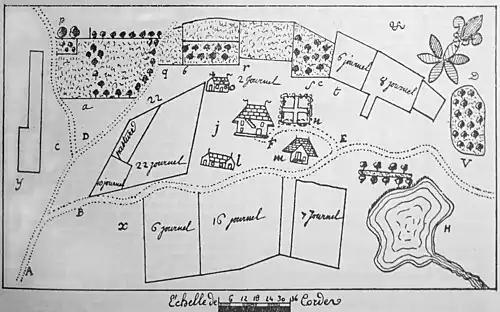 p
q
6
r
s
c
t
6 journel
8 journel
D
a
22
2 Journel
j
n
D
c
pasture
22 journel
10 journel
F
E
l
m
V
y
B
x
6 journel
16 journel
7 Journel
H
A
Echelle de 6 12 18 24 30 36 Cordes